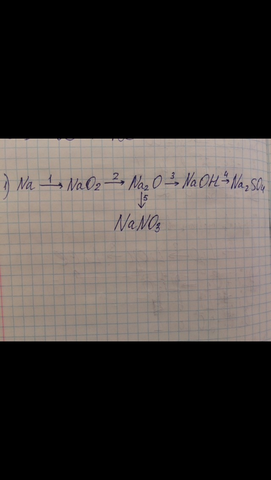 1) Na 1→ NaO2 2→ Na2O 3→ NaOH 4→ Na2SO4
↓5
NaNO3